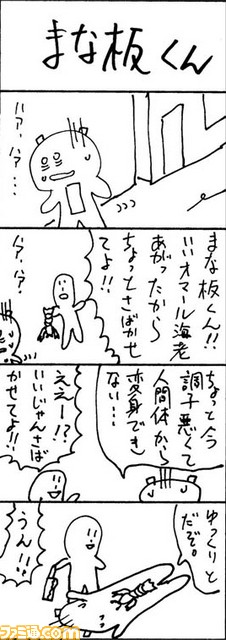 まな板くん
ハァ、ハァ…
まな板くん!!
いいオマール海老
あがったから
ちょっとさばかせ
てよ!!
ハァ、ハァ
ちょっと今
調子悪くて
人間体から
変身でき
ない…
ええー!?
いいじゃんさば
かせてよ!!
ゆっくりと
だぞ。
うん!!
ファミ通.com